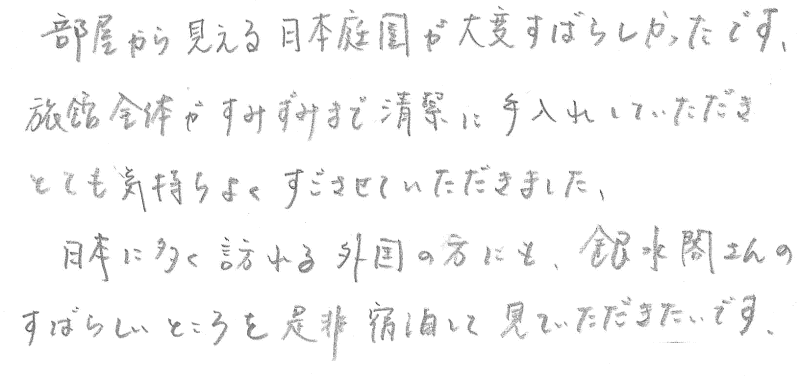 部屋から見える日本庭園が大変すばらしかったです、
旅館全体がすみずみまで清潔に手入れしていただき
とても気持ちよくすごさせていただきました、
日本に多く訪れる外国の方にも、銀水閣さんの
すばらしいところを是非宿泊して見ていただきたいです、